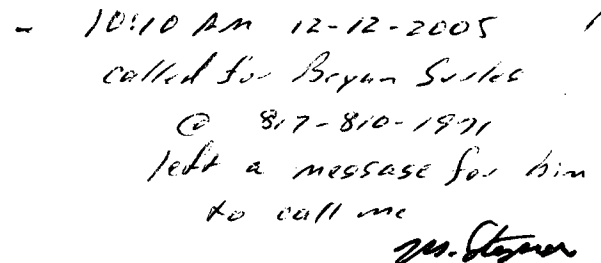 - 10:10 AM 12-12-2005
called for Bryan
@ 817-810-1971
left a message for him
to call me
M.